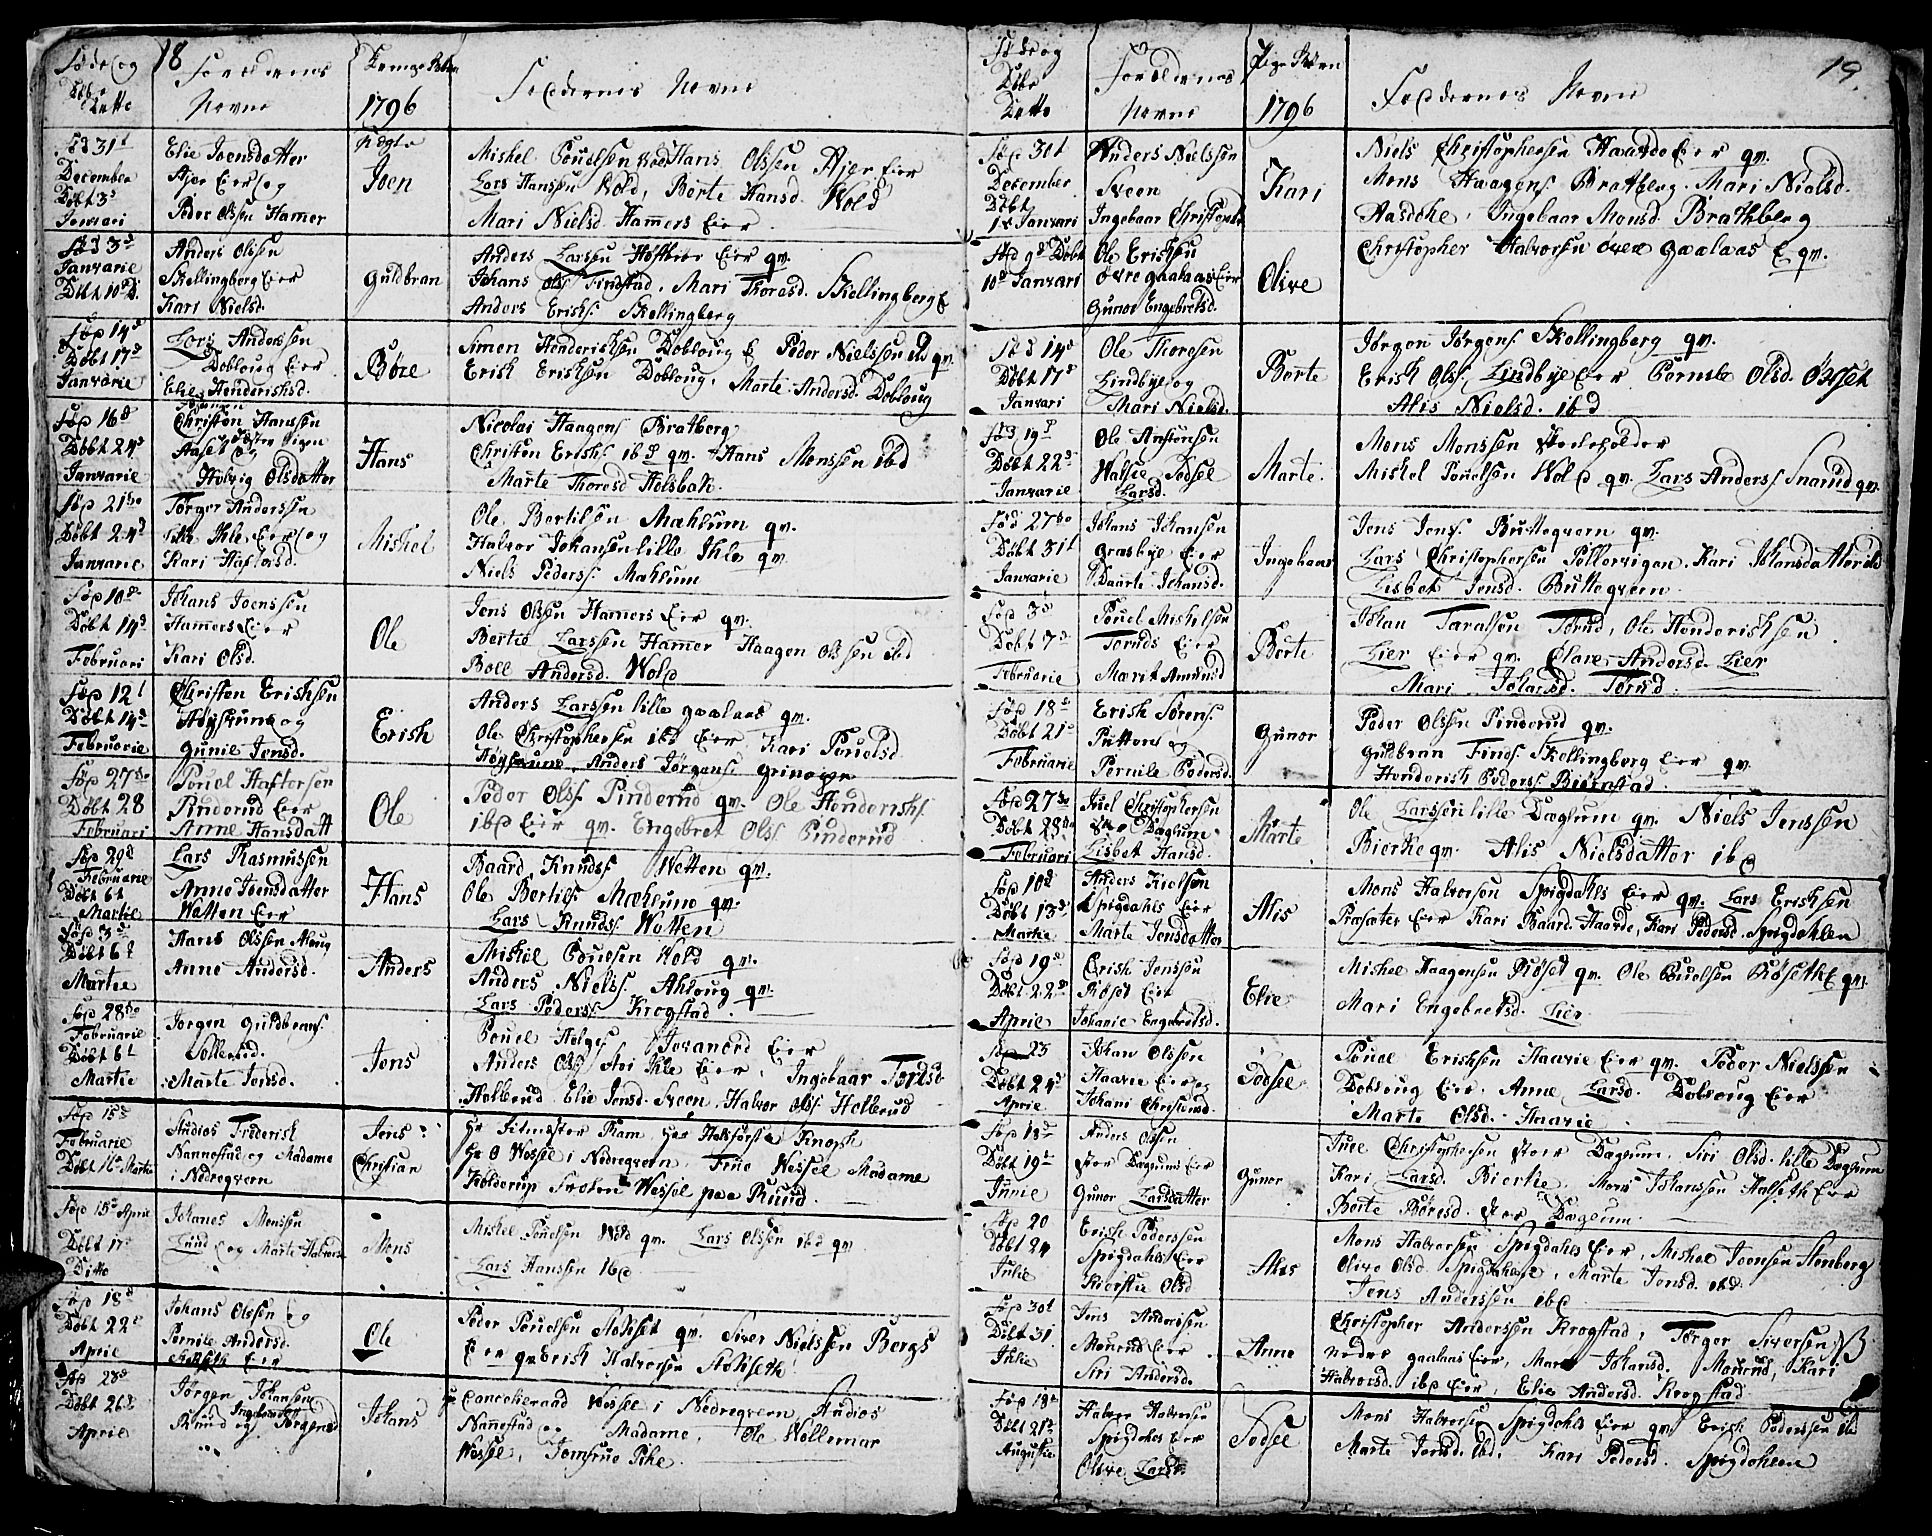 18
Føde og
Døbe
Datto
Forældrenes
Nevne
Drenge Børn
1796
Faddernes Nevne
Fød 31t
December
Døbt 3d
Januari
Elie Joensdatter
Ajer Eier og
Peder Olssen Hamer
Joen
Mishel Pouelsen Hans Olssen Ajer Eier
Lars Hanssen Wold, Børte Hansd. Wold
Mari Nielsd Hamers Eier
Fød 3d
Januarie
Døbt 10d
Anders Olssen
Skellingberg Eier
Kari Nielsd.
Guldbran
Anders Larssen Eier qv.
Johans Olss Findstad, Mari Thoresd. Skellingberg E
Anders Erichs Skellingberg
Fød 14d
Døbt 17d
Januarie
Lars Anderssen
Dobloug Eier
Elie Henderichsd.
Børe
Simen Henderichsen Dobloug E Peder Nielssen ibd qv.
Erich Erichsen Dobloug, Marte Andersd Dobloug
Fød 16d
Døbt 24d
Januarie
Christen Hanssen
Aaset og
Helvig Olsdatter
Hans
Nicolai Haagens Bratberg
Christen Erichs ibd qv. Hans Monssen ibd
Marte Thoresd Holsbak.
Fød 21de
Døbt 24d
Januarie
Tørger Anderssen
Ihle Eier og
Kari Haftorsd.
Mishel
Ole Bertilsen Mæhlum qv.
Halvor Johansen lille Ihle qv.
Niels Peders Mahlum
Fød 10d
Døbt 14d
Februari
Johans Joenssen
Hammers Eier
Kari Olsd.
Ole
Jens Olssen Hamers Eier qv.
Bertil Larssen Hammer Haagen Olssen ibd
Boel Andersd. Wold
Fød 12t
Døbt 14d
Februarie
Christen Erichsen
og
Gunil Jensd.
Erich
Anders Larssen lille Gaalaas qv.
Ole Christophersen ibd Eier Kari Pouelsd
Anders Jørgens
Fød 27de
Døbt 28
Februari
Pouel Haftorsen
Pinderud Eier
Anne Hansdatt
Ole
Peder Olss Pinderud qv. Ole Henderichs
ibd Eier qv. Engebret Olss Pinderud
Fød 29d
Februarie
Døbt 6t
Martie
Lars Rasmussen
Anne Joensdatter
Wetten Eier
Hans
Baard Knuds Wetten qv.
Ole Bertils Mæhlum qv.
Lars Knuds Wetten
Fød 3d
Døbt 6t
Martie
Hans Olssen Aloug
Anne Andersd.
Anders
Mishel Pouelsen Wold qv.
Anders Niels Ahloug qv.
Lars Peders Krogstad.
Fød 28de
Februarie
Døbt 6t
Martie
Jørgen Guldbrans
Marte Jensd.
Jens
Pouel Helges Eier
Anders Olss Ihle Eier, Ingebaar
Holbrud Elie Jensd. Sveen, Halvor Olss Holbrud
Fød 15d
Februarie
Døbt 16 Martie
Studios Friderich
Nannestad og Madame
i Nedreqvern
Jens
Christian
Hr Ram
Hr O Wessel i Nedreqvern, Frue Wessel Madame
Wessel paa Ruud
Fød 15d April
Døbt 17d
Ditto
Johanes Monssen
Lund og Marte Halvors
Mons
Mishel Pouelsen Wold qv. Lars Olssen ibd qv
Lars Hanssen ibd
Fød 18d
Døbt 22d
Aprie
Johans Olssen og
Pernile Andersd.
Eier
Ole
Peder Pouelsen qv. Siver Nielssen Bergs
Eier qv Erich Halvorsen
Fød 23d
Døbt 26d
April
Jørgen Johansen
Ruud og Jørgensd
Johans
Wessel i Nedreqvern Studios
Nannestad og Madame, Ole Wollemar
Wessel, Jomfrue
19.
Føde og
Døbe
Datto
Forældrenes
Nevne
Pige Børn
1796
Faddernes Nevne
Fød 30t
December
Døbt
1t Januari
Anders Nielssen
Sveen
Ingebaar Christophd
Kari
Niels Christophersen Haarde Eier qv.
Mons Haagens Bratberg. Mari Nielsd.
Ingebaar Monsd. Brathberg
Fød 9d Døbt
10d Januari
Ole Erichsen
øvre Gaalaas Eier
Gunor Engebretsd.
Olive
Christopher Halvorsen øvre Gaalaas E qv.
Fød 14d
Døbt 17d
Januari
Ole Thoresen
Lindbye og
Mari Nielsd.
Børte
Jørgen Jørgens Skellingberg qv.
Erich Olss. Lindbye Eier Pernele Olsd.
Alis Nielsd. ibd
Fød 19d
Døbt 22d
Januarie
Ole
Sedsel
Larsd.
Marte.
Mons Monssen Skoleholder
Mishel Pouelsen Wold qv. Lars Anders Snarud qv.
Fød 27de
Døbt 31t
Januarie
Johans Johansen
Græsbye Eier
Johansd.
Ingebaar
Jens Jens Butteqvern qv.
Lars Christophersen, Kari Johansdatter ibd
Lisbet Jensd. Butteqvern
Fød 3d
Døbt 7d
Februarie
Pouel Mishelsen
Toruds Eier
Marit Amundsd
Børte
Johan Taralsen Torud, Ole Henderichsen
Lier Eier qv. Andersd. Lier
Mari Johansd. Torud.
Fød 18d
Døbt 21d
Februarie
Erich Sørens.
Putten og
Pernile Pedersd.
Gunor
Peder Olssen Pinderud qv.
Guldbran Finds. Skellingberg Eier qv.
Henderich Peders. Biørnstad.
Fød 27de
Døbt 28de
Februari
Juel Christophersen
Dæglum
Lisbet Hansd.
Marte
Ole Larssen lille Dæglum qv. Niels Jenssen
Bierke qv. Alis Nielsdatter ibd
Fød 10d
Døbt 13d
Martie
Anders Kielsen
Spigdahls Eier
Marte Jensdatter
Alis
Mons Halvorsen Spigdahls Eier qv. Lars Erichsen
Præsæter Eier Kari Baard. Haarde, Kari Pedersd. Spigdahlen
Fød 19d
Døbt 22d
Aprile
Erich Jenssen
Røset Eier
Johanie Engebretsd.
Elie
Mishel Haagensen Røset qv. Ole Pouelsen Røseth E qv.
Mari Engebretsd. Lier
Fød 23
Døbt 24d
Aprie
Johan Olssen
Haarie Eier og
Johani Christensd.
Sedsel
Pouel Erichsen Haarie Eier qv. Peder Nielssen
Dobloug Eier, Anne Larsd. Dobloug Eier
Marte Olsd. Haarie
Fød 18d
Døbt 19d
Junie
Anders Olssen
stor Dæglums Eier
Gunor Larsdatter
Gunor
Juel Christophersen stor Dæglum, Siri Olsd. lille Dæglum
Kari Larsd. Bierke, Mons Johanssen Halseth Eier
Børte Børesd. stor Dæglum
Fød 20
Døbt 24
Julie
Erich Pederssen
Spigdahls Eier
Kierstie Olsd
Alis
Mons Halvorsen Spigdahls Eier, Mishel Joensen Stenberg
Olive Olsd. Spigdahlen, Marte Jensd. ibd.
Jens Anderssen ibd
Fød 30t
Døbt 31
Julie
Jens Andersen
Mourud Eier
Siri Andersd.
Anne
Christopher Anderssen Krogstad, Tørger Siversen
nedre Gaalaas Eier, Mari Johansd. Mourud, Kari
Halvorsd. ibd Eier, Elie Andersd. Krogstad
Fød 18d
Døbt 21d
Augustie
Halvor Halvorsen
Spigdahls Eier
Olive Larsd.
Sedsel
Mons Halvorsen Spigdahls Eier qv. Erich Pederssen ibd
Marte Jensd. ibd, Kari Pedersd. Spigdahlen